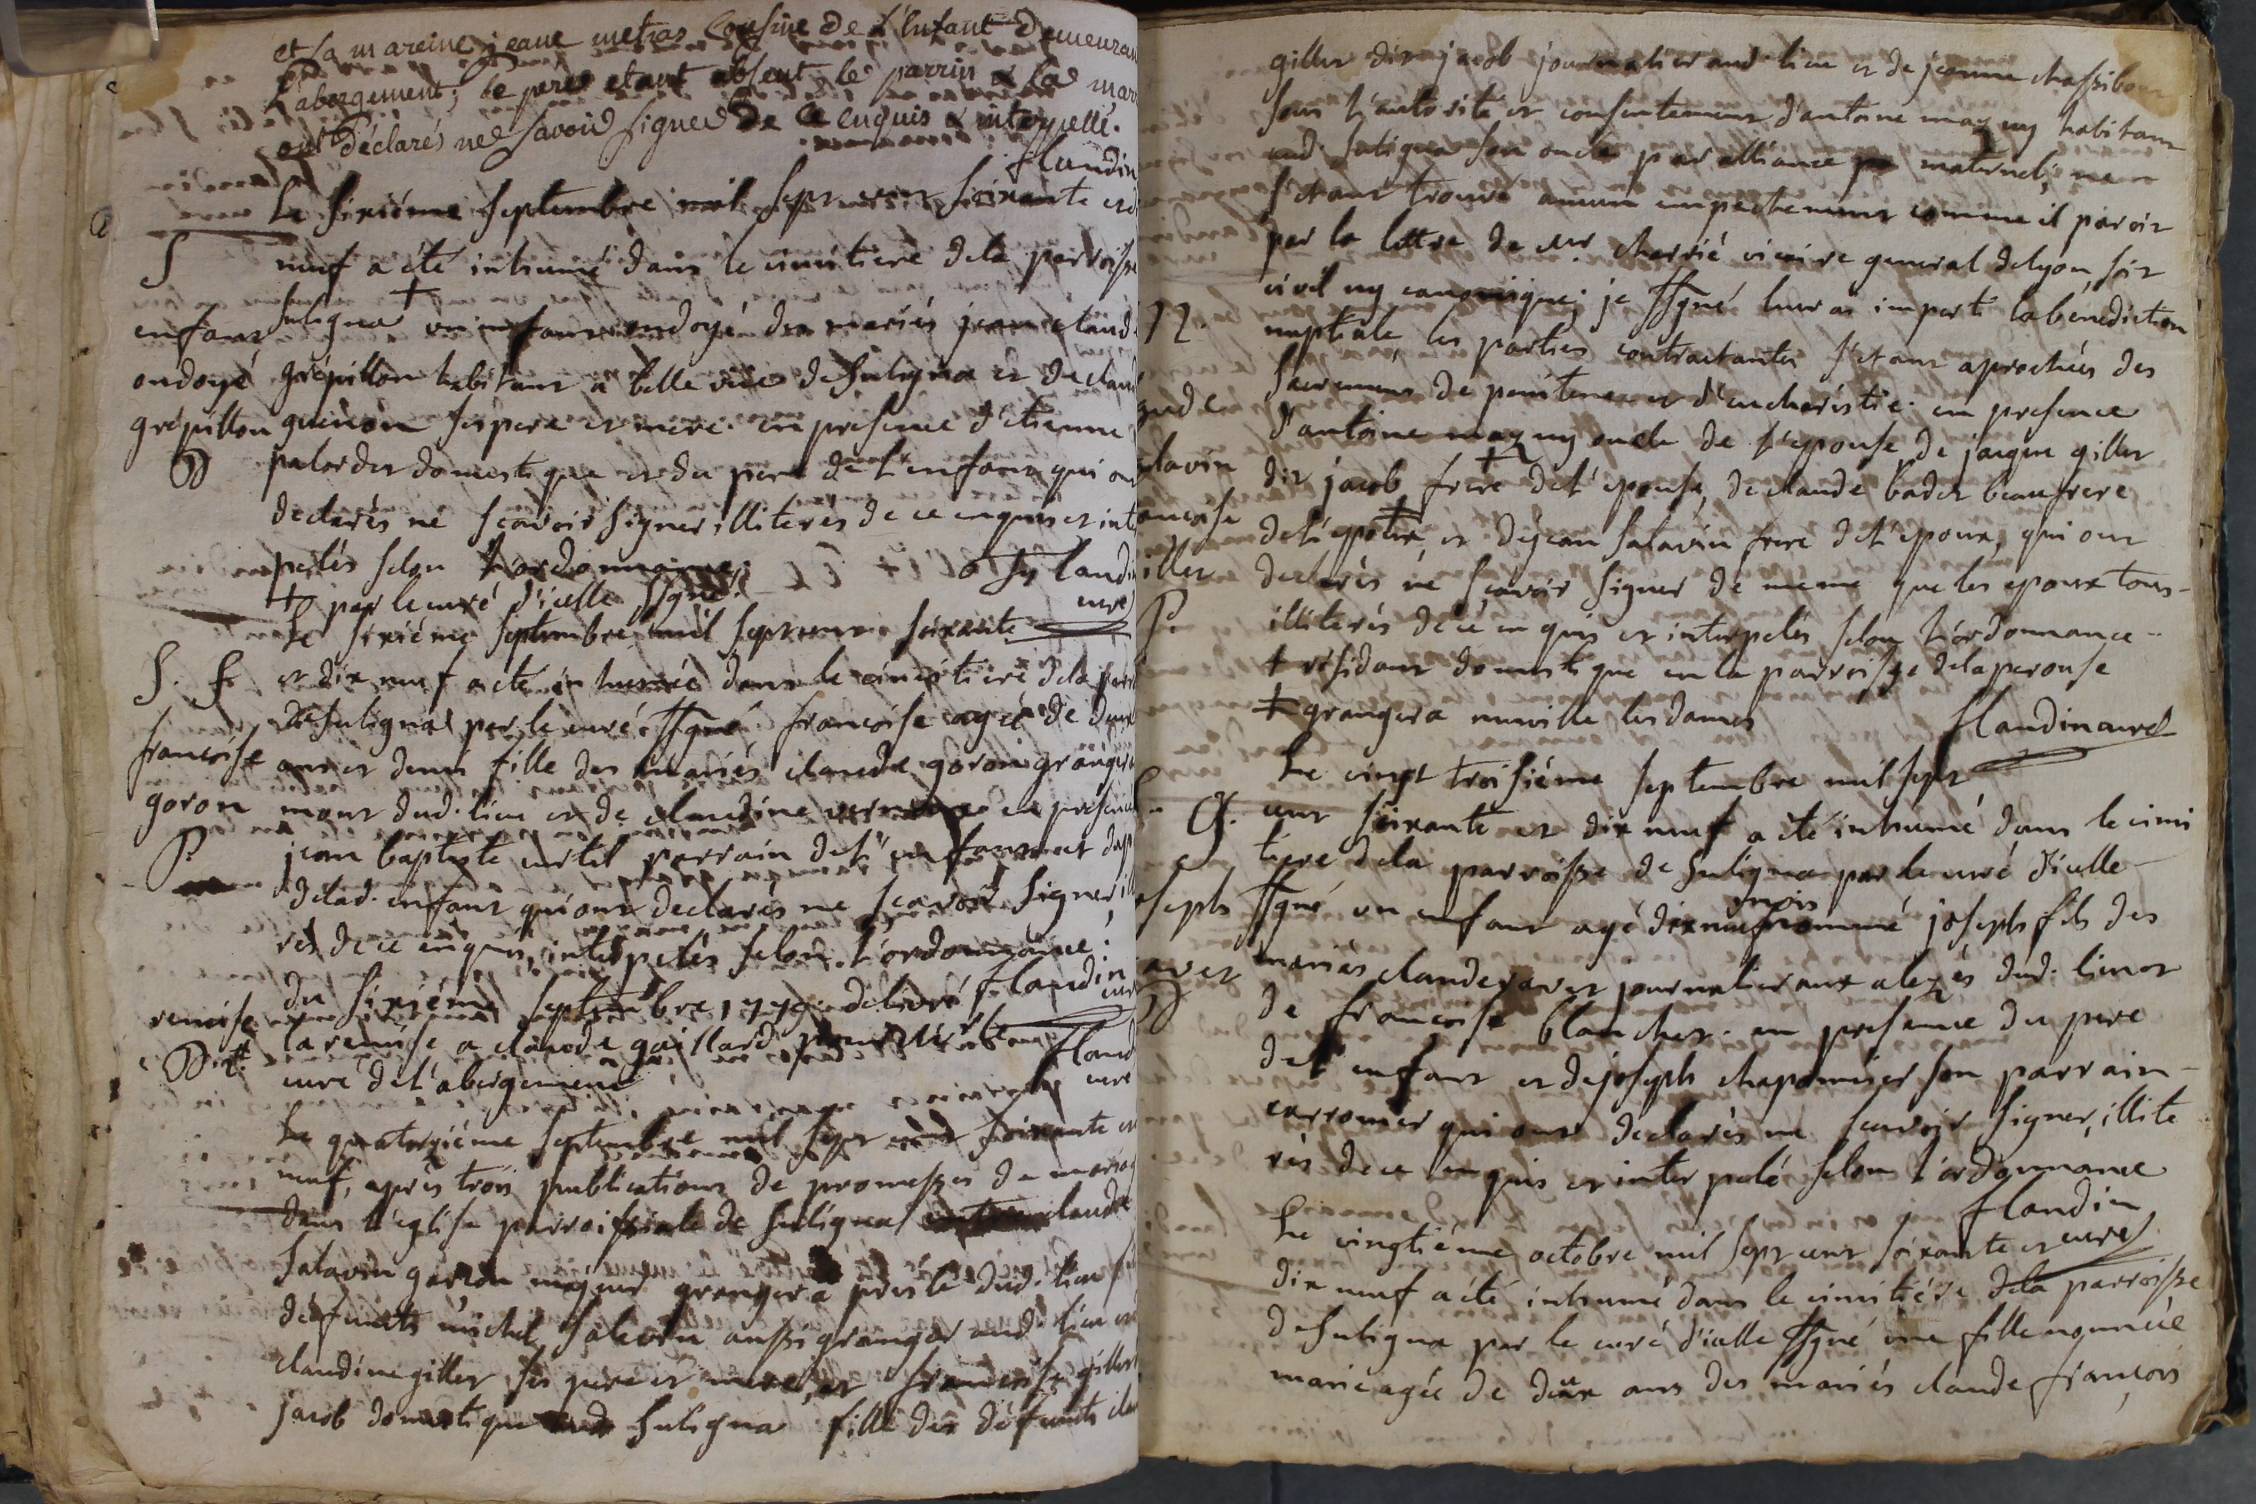 et sa mareine jeane metras Cousine de L'Enfant Demeuran
L'abergement; le pere etant absent, le parrin & la mar
ont Déclarés ne Savoir Signer De Ce enquis & interpellé.
flandin
Le Sixiéme Septembre mil Sept cent Soixante et d
S
neuf a été inhumé dans le cimitiere dela parroisse
Suligna + un enfant ondoyé des mariés jean claud
enfant
ondoyé
grépillon habitant a belle vüe de Suligna et de claud
grépillon
guenon ses pere et mere. en presence d'etienne
palordet domestique et du pere de l'enfant qui on
declarés ne scavoir signer illiterés de ce enquis et inte
pelés selon l'ordonnance.
flandin
curé
+ par le curé d'icelle ssgné.
Le Sixiéme Septembre mil Sept cent Soixante
S. f.
et dix neuf a été inhumée dans le cimitiere dela parr
de Suligna par le curé ssgné francoise agée de deux
francoise
ans et demi fille des mariés claude goron granger
goron
mont dud. lieu et de claudine en présence
P.
jean baptiste curtil parrain de l'enfant et du p
delad. enfant qui ont declarés ne scavoir signer, ill
rés de ce enquis, interpelés selon l'ordonnance.
flandin
curé
du Sixiéme Septembre 1779. delivré
remise
la remise a claude gaillard pour Mr. le
curé de l'abergement
flandin
curé
Le quatorziéme Septembre mil Sept cent Soixante et
neuf, après trois publications de promesses de mariag
dans l'eglise parroissiale de Suligna claude
Salavin garçon majeur granger a dud. lieu fi
défunts michel Salavin aussi granger aud. lieu et
claudine gillet ses pere et mere, et francoise gillet
jacob domestique Suligna fille des défunts clau
gillet dit jacob journalier aud. lieu et de jeanne chassibout
sous l'autorité et consentement d'antoine mazuy habitant
aud. Suligna son oncle par alliance maternel; ne
s'étant trouvé aucun empechement comme il paroit
par la lettre de Mr. charrié vicaire general de lyon, soit
civil ny canonique; je ssgné leur ai imparti la bénédiction
nuptiale les parties contractantes s'étant aprochées des
Sacremens de penitence et d'eucharistie. en presence
d'antoine mazuy oncle de l'epouse, de jaque gillet
dit jacob + frere de l'epouse, de claude badet beaufrere
de l'epoux, et dejean Salavin + frere de l'epoux, qui ont
declarés ne scavoir signer de meme que les epoux tous
illiterés de ce enquis et interpelés selon l'ordonnance
+ résidant domestique en la parroisse de la perouse
+ granger a neuville les dames
flandin curé
Le vingt troisiéme Septembre mil Sept
G.
cent Soixante et dix neuf a été inhumé dans le cimi
tiere dela parroisse de Suligna par le curé d'icelle
oseph
ssgné un enfant agé dix neuf mois nommé joseph fils des
mariés claude ravet journalier aux alezés dud. lieu et
avet
de francoise blanchet. en presence du pere
de l'enfant et de joseph chaponnier son parrain
carronier qui ont declarés ne scavoir signer, illite
rés de ce enquis et interpelé selon l'ordonnance
flandin
curé
Le vingtiéme octobre mil Sept cent Soixante et
dix neuf a été inhumé dans le cimitiére dela parroisse
de Suligna par le curé d'icelle ssgné une fille nommée
marie agée de deux ans des mariés claude françois